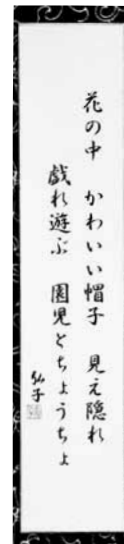 花の中　かわいい帽子　見え隠れ
戯れ遊ぶ　園児とちょうちょ
弘子